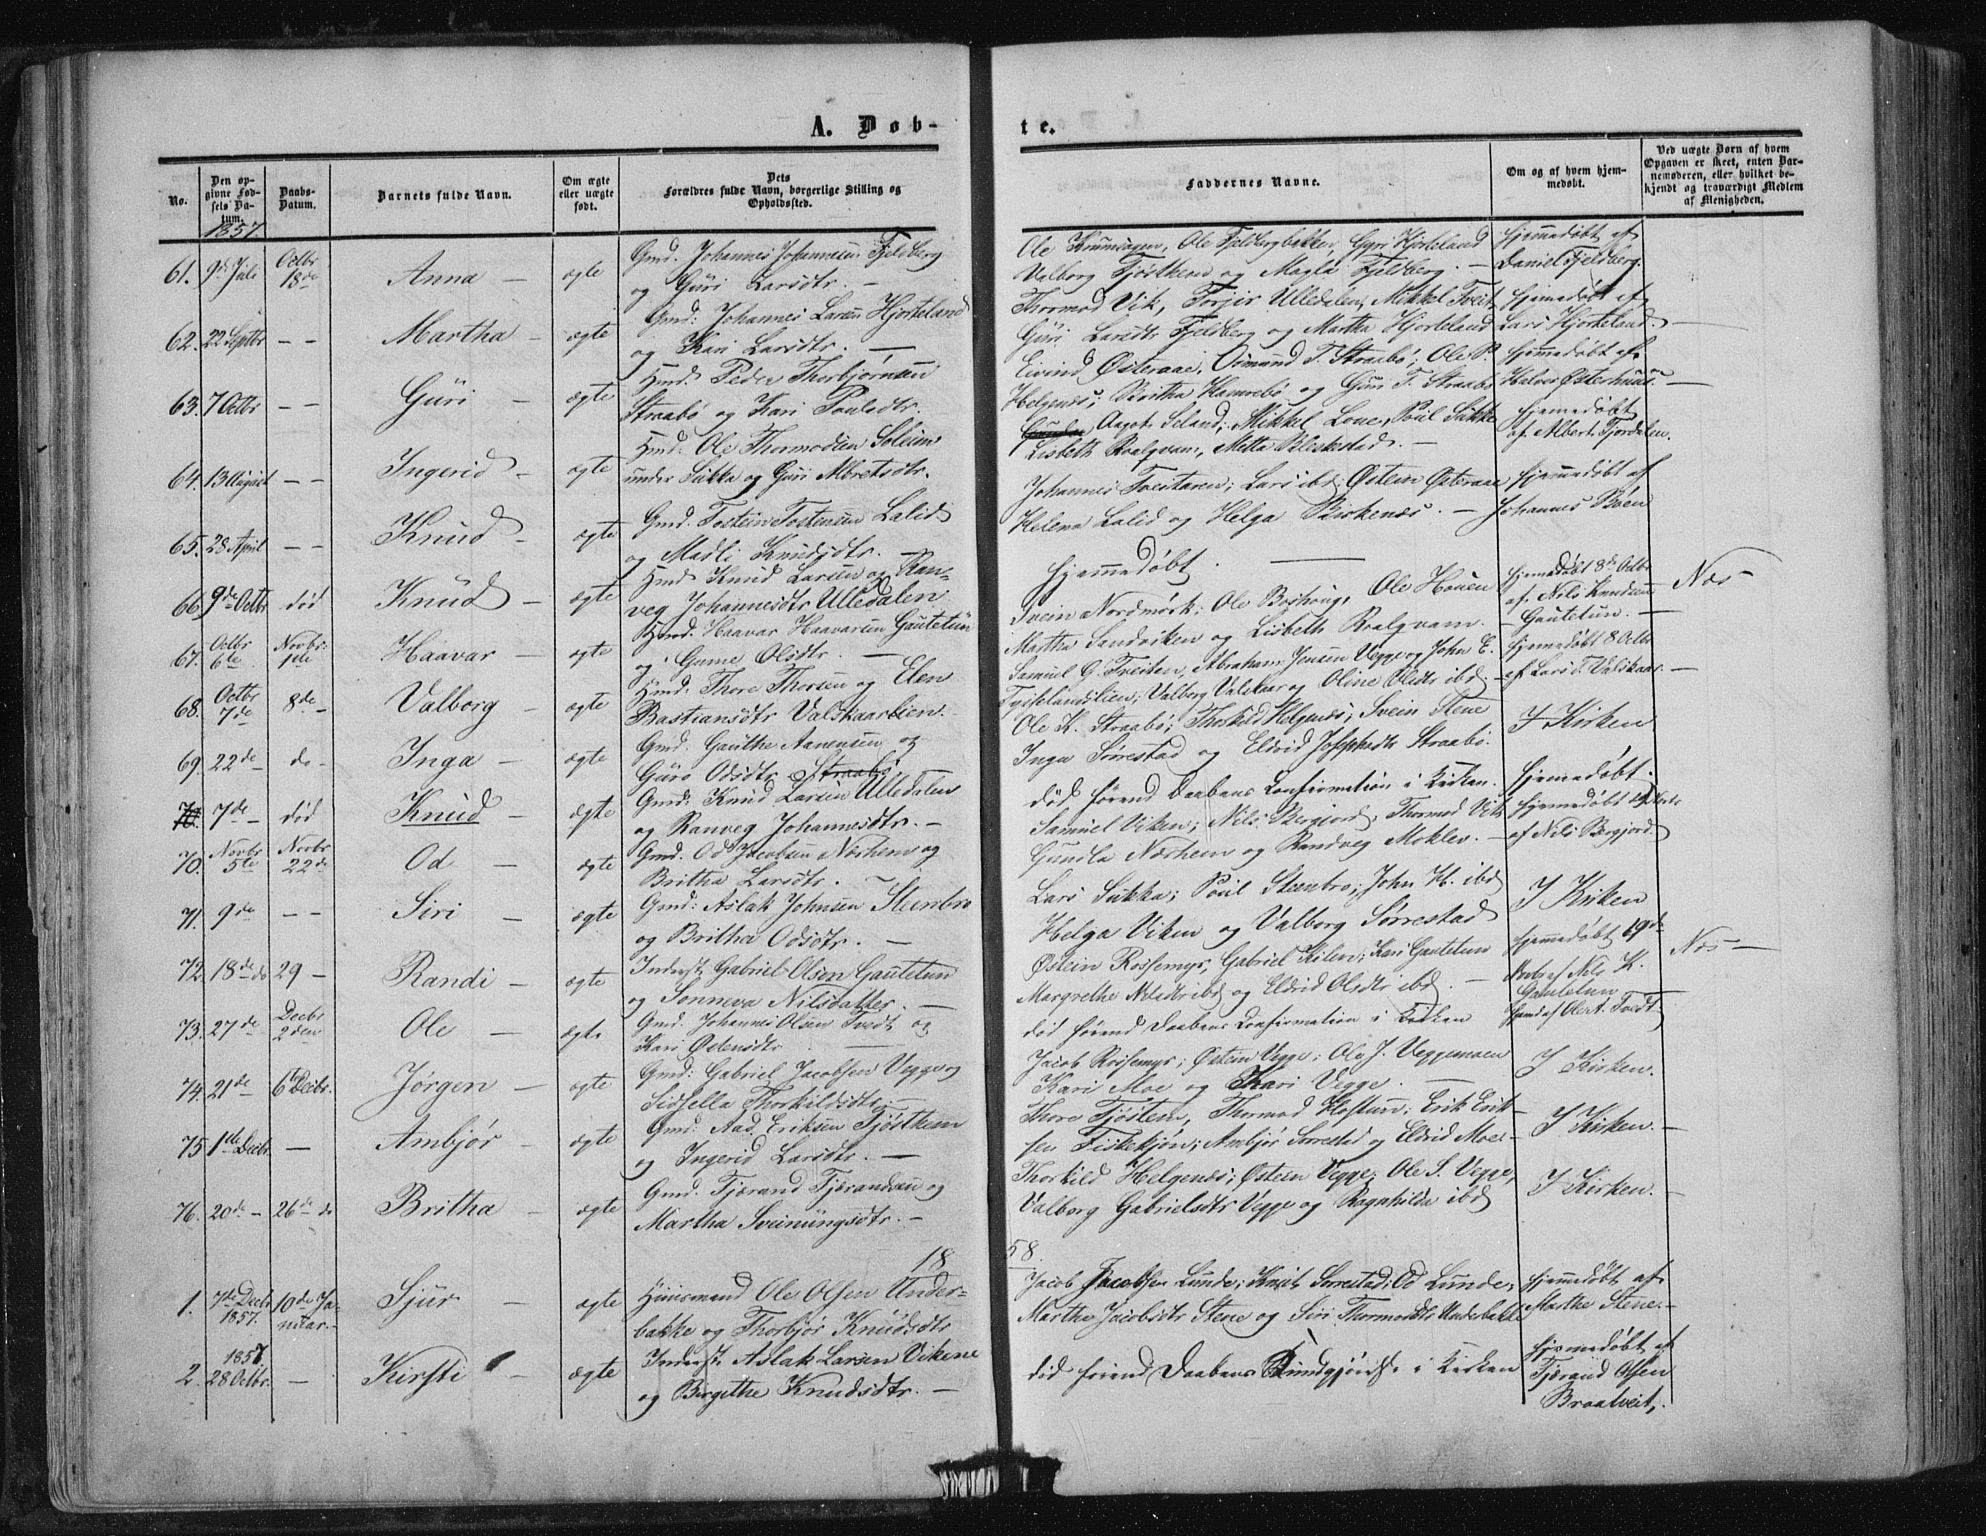 A. Døb-
te.
No.
Den op-
givne Fød-
sels Da-
tum.
Daabs-
Datum.
Barnets fulde Navn.
Om ægte
eller uægte
født.
Dets
Forældres fulde Navn, borgerlige Stilling og
Opholdssted.
Faddernes Navne.
Om og af hvem hjem-
medøbt.
Ved uægte Børn af hvem
Opgaven er skeet, enten Bar-
nemoderen, eller hvilket be-
kjendt og troværdigt Medlem
af Menigheden.
1857.
61. 9de Juli Octbr 18de Anna – ægte Gmd. Johannes Johannesen Fjeldberg
og Guri Larsdtr. –
Ole Ole Fjeldbergbakken, Guri Hjorteland
Valborg Tjøsthem og Magla Fjeldberg. –
Hjemmedøbt af
Daniel Fjeldberg.
62. 22 Septbr – – Martha – ægte Gmd: Johannes Larsen Hjorteland
og Kari Larsdtr. –
Thormod Vik, Torjer Ulledalen, Mikkel Tveit
Guri Larsdtr Fjeldberg og Martha Hjorteland
Hjemmedøbt af
Lars Hjorteland. –
63. 7 Octbr – – Guri – ægte Hmd. Peder Thorbjørnsen
Straabø og Kari Poulsdtr.
Eivind Østeraae, Osmund T. Straabø; Ole P.
Helgenæs; Britha Hamrebø og Guri T. Straabø
Hjemmedøbt af
Halvor Østerhuus. –
64. 13 August – – Ingerid – ægte Hmd. Ole Thormodsen Soleim
under Sukka og Guri Albretsdtr.
Aagot Seland, Mikkel Lone, Poul Sukke
Lisbeth Roalqvam, Metta Bleskestad. –
Hjemmedøbt
af Albert Fjordalen.
65. 28 April – – Knud – ægte Gmd. Tostein Tostensen Lalid
og Madli Knudsdtr. –
Johannes Tveitaren; Lars ibd; Østein Østeraae
Helena Lalid og Helga Birkenæs. –
Hjemmedøbt af
Johannes Bøen
66. 9de Octbr død Knud – ægte Hmd. Knud Larsen og Ran-
veg Johannesdtr Ulledalen
Hjemmedøbt. –
67. Octbr 6te Novbr. 1ste Haavar – ægte Hmd. Haavar Haavarsen Gautetun
og Gunne Olsdtr. –
Svein Nordmork; Ole Boshoug, Ole Houen
Martha Sandviken og Lisbeth Roalqvam.
Hjemmedøbt 8de Octbr
af Nils Knudsen
Gautetun. –
Næs –
68. Octbr 7de 8de – Valborg – ægte Hmd. Thore Thorsen og Elen
Bastiansdtr Valskaarlien.
Samuel G. Tveiten, Abraham Jensen Vegge og John E.
Tysselandslien; Valborg Valskaar og Oline Olsdtr ibd. –
Hjemmedøbt 8 Octbr
af Lars T. Valskaar. –
69. 22de – do – Inga – ægte Gmd. Gauthe Aanensen og
Guro Odsdtr Straabø
Ole K. Straabø; Thorkild Helgenæs; Svein Stene
Inga Sørrestad og Eldrid Josephsdtr Straabø.
I Kirken
70. 7de – død Knud – ægte Gmd. Knud Larsen Ulledalen
og Ranveg Johannesdtr. –
død førend Daabens Confirmation i Kirken.
Hjemmedøbt.
70. Novbr 5te Novbr 22de Od – ægte Gmd. Od Jacobsen Næshem og
Britha Larsdtr. –
Samuel Viken; Nils Bergjord, Thormod Vik
Gunla Næshem og Randveg Moklev. –
Hjemmedøbt
af Nils Bergjord.
71. 9de – – Siri – ægte Gmd: Aslak Johnsen Steenbro
og Britha Odsdtr. –
Lars Sukka; Poul Steenbro; John H. ibd
Helga Viken og Valborg Sørrestad
I Kirken
72. 18de do 29 – Randi – ægte Inderst Gabriel Olsen Gautetun
og Sønneva Nilsdatter. –
Østein Rossemyr, Gabriel Kilen; Kari Gautetun
Margrethe Nilsdtr ibd og Eldrid Olsdtr ibd. –
Hjemmedøbt 19de
Novbr af Nils K.
Gautetun
Næs –
73. 27de Decbr 2den Ole – ægte Gmd. Johannes Olsen Tvedt og
Kari Østensdtr –
død førend Daabens Confirmation i Kirken
Hjemd af Oler A. Tvedt.
74. 21de 6te Decbr. Jørgen – ægte Gmd: Gabriel Jacobsen Vegge og
Sidsella Thorkildsdtr. –
Jacob Rossemyr; Østein Vegge; Ole J. Veggemoen
Kari Moe og Kari Vegge. –
I Kirken.
75. 1ste Decbr. – Ambjør – ægte Gmd: Aad Eriksen Tjøsthem
og Ingerid Larsdtr. –
Thore Tjøstem, Thormod Hoftun; Erik Erik-
sen Fiskekjøn; Ambjør Sørrestad og Eldrid Moe –
I Kirken. –
76. 20de – 26de do Britha – ægte Gmd. Tjærand Tjærandsen og
Martha Sveinungsdtr. –
Thorkild Helgenæs; Østein Vegge; Ole S. Vegge,
Valborg Gabrielsdtr Vegge og Ragnhilde ibd
I Kirken. –
18
58.
1. 7de Decbr 1857. 10de Ja-
nuar. – Sjur – ægte Huusmand Ole Olsen Under-
bakke og Thorbjør Knudsdtr
Jacob Jacobsen Lunde; Knut Sørrestad; Od Lunde;
Martha Jacobsdtr Stene og Siri Thormodsdtr Underbakke
Hjemmedøbt af
Marthe Stene. –
2. 1857 28 Octbr. – Kirsti – ægte Inderst Aslak Larsen Vikene
og Birgithe Knudsdtr. –
død førend Daabens Kundgjørelse i Kirken
Hjemmedøbt af
Tjærand Olsen
Braatveit.